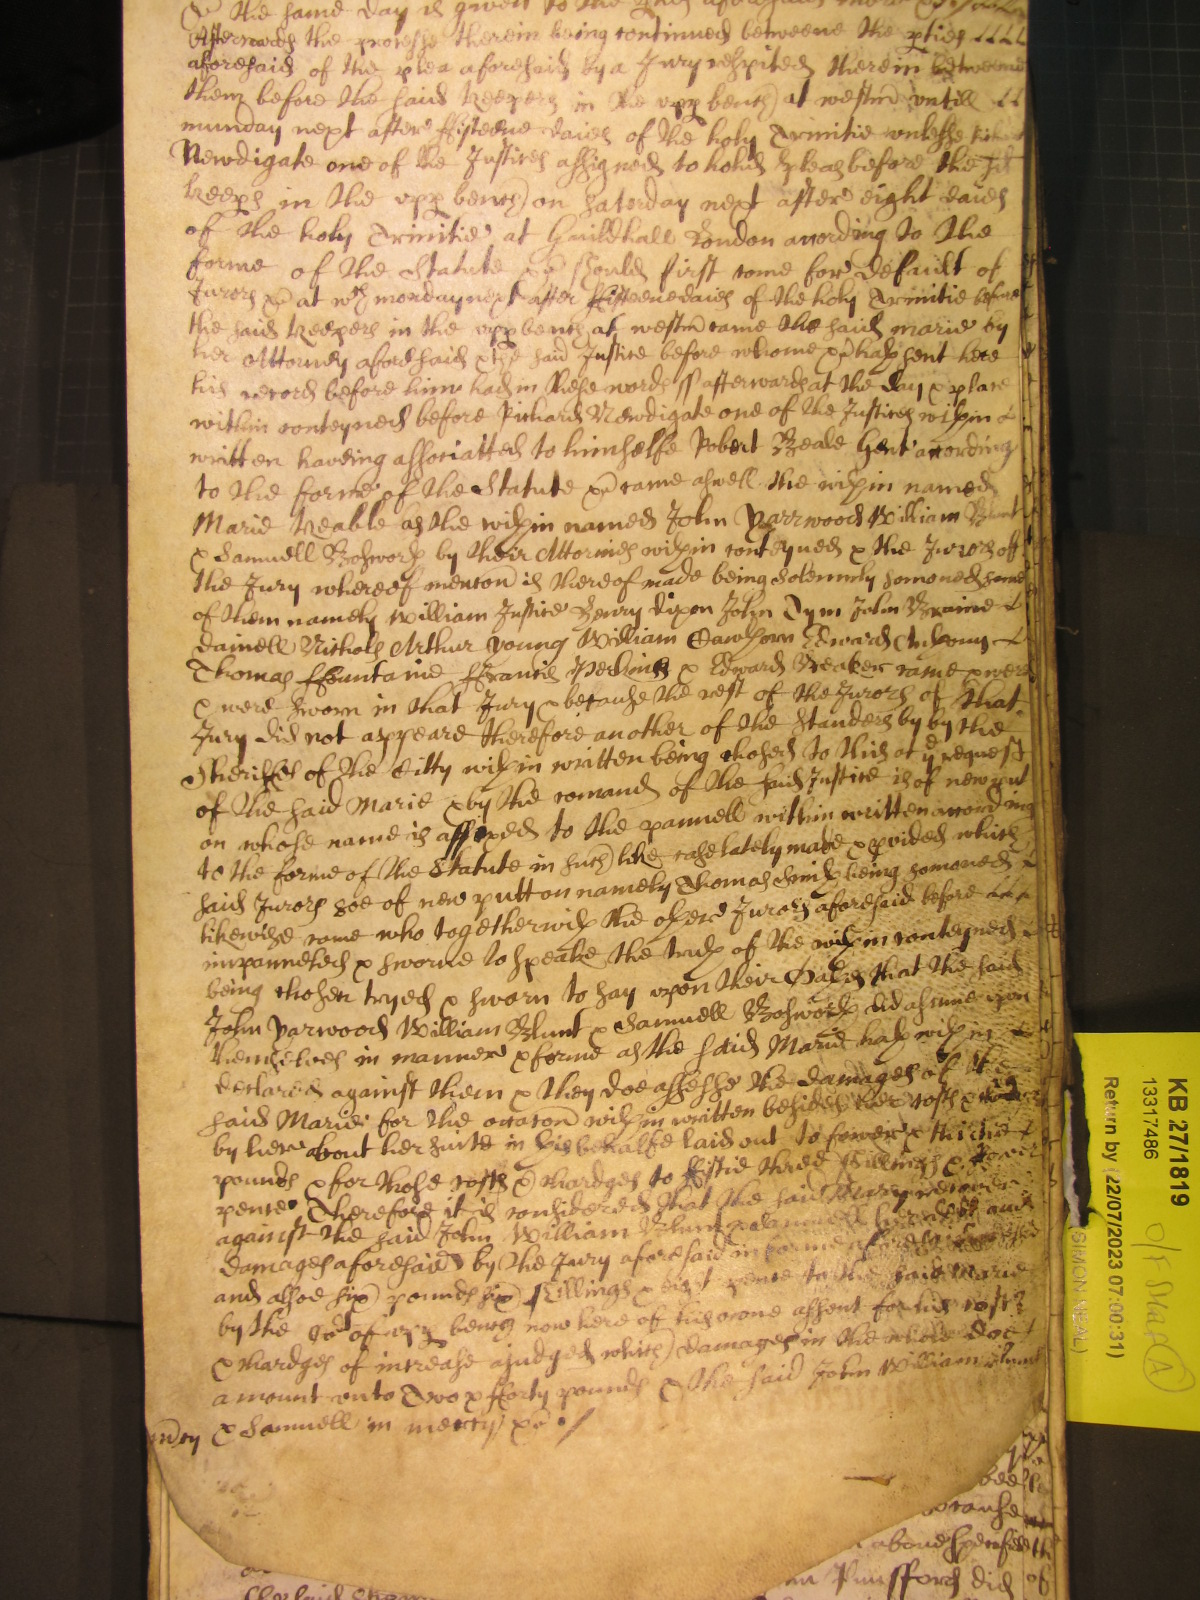 & the same day is given to the
Afterwards the processe therein being continued betweene the pties
aforesaid of the plea aforesaid by a Jury respited therein betweene
them before the said Keepers in the upp bench at westm untill
munday next after ffifteene daies of the holy Trinitie unlesse
Newdigate one of the Justices assigned to hold pleas before the sd
Keeps in the upp bench on Saterday next after eight daies
of the holy Trinitie at Guildhall London according to the
forme of the Statute &c should first come for default of
Jurors &c at wch monday next after ffifteene daies of the holy Trinitie before
the said Keepers in the upp bench at westm came the said Marie by
her Attorney aforesaid & the said Justice before whome &c hath sent here
his record before him had in these words ss afterwards at the day & place
within conteyned before Richard Newdigate one of the Justices wthin
written haveing associatted to himselfe Robert Beale Gent according
to the forme of the Statute &c came aswell the wthin named
Marie Keable as the wthin named John Yarrwood William Blunt
& Samuell Bosworth by their Attornies wthin conteyned & the Jurors of
the Jury whereof mencon is thereof made being solemnly somoned some
of them namely William Justice Henry Dixon John Tym John Browne
Daniell Nichols Arthur Young William Edward
Thomas ffountaine ffrancis Perkins & Edward came & were
& were sworn in that Jury & because the rest of the Jurors of that
Jury did not appeare therefore another of the Standers by by the
Sheriffes of the Citty wthin written being chosen to this at ye request
of the said Marie & by the comand of the said Justice is of new put
on whose name is affixed to the pannell within written according
to the forme of the Statute in such like case lately made & pvided which
said Jurors soe of new putt on namely Thomas Smith being somoned
likewise came who together with the other Jurors aforesaid before
impannelled & sworne to speake the truth of the wthin conteyned
being chosen tryed & sworn to say upon their Oathes that the said
John Yarwood William Blunt & Samuell Bosworth did assume upon
themselves in manner & forme as the said Marie hath wthin
declared against them & they doe assesse the damages of the
said Marie for the occacon wthin written besides her costs &
by here about her suite in this behalfe laid out to fower & thirtie
pounds & for those costs & chardges to ffiftie three shillings & fower
pence Therefore it is considered that the said Mary recover
against the said John William Blunt & Samuell her debt and
damages aforesaid by the Jury aforesaid in forme aforesaid assessed
and alsoe six pounds six shillings & eight pence to the said Marie
by the Cort of upp bench now here of his owne assent for his costs
& chardges of increase ajudged which damages in the whole doe
amount unto Two & fforty pounds & the said John William Blunt
mcy & Samuell in mercy &c ./
because
above specified
Punsford did of
KB 27/1819
13317486
Return by (22/07/2023 07:00:31)
SIMON NEAL)
O/F Staff (A)